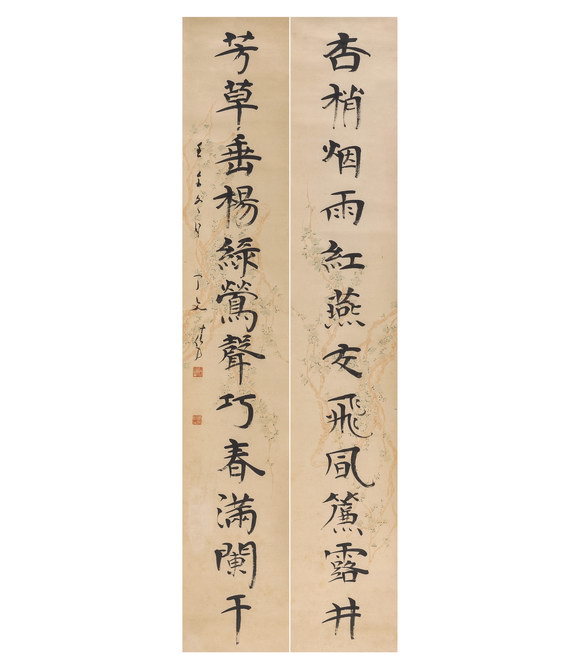 杏梢烟雨紅燕友飛凨簾露井
芳草垂楊綠鶯聲巧春滿闌干